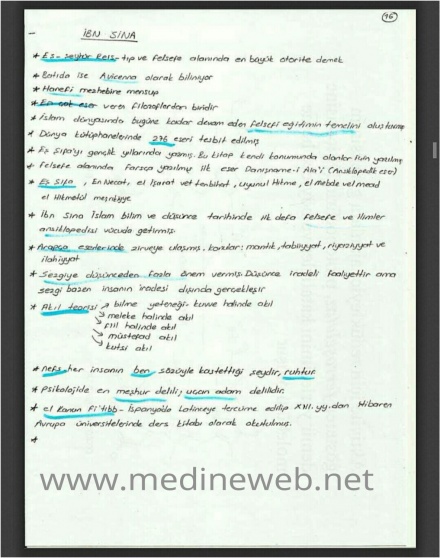 96
İBN SİNA
* Eş-Şeyhür Reis-tıp ve felsefe alanında en büyük otorite demek
* Batıda ise Avicenna olarak biliniyor
* Hanefi mezhebine mensup
* En çok eser veren filozoflardan biridir
* İslam dünyasında bugüne kadar devam eden felsefi eğitimin temelini oluşturmuş
* Dünya kütüphanelerinde 276 eseri tesbit edilmiş
* Eş Şifa'yı gençlik yıllarında yazmış. Bu kitap kendi konumunda olanlar için yazılmış
* Felsefe alanında Farsça yazılmış ilk eser Danişname-i Alai (Ansiklopedik eser)
* Eş Şifa, En Necat, el İşarat vet tenbihat, uyunul Hikme, el mebde vel mead
el Hikmetül meşrikiyye
* İbn Sina İslam bilim ve düşünce tarihinde ilk defa felsefe ve ilimler
ansiklopedisi vücuda getirmiş
* Arapça eserlerinde zirveye ulaşmış. konular: mantık, tabiiyyat, riyaziyyat ve
ilahiyyat
* Sezgiye düşünceden fazla önem vermiş. Düşünce iradeli faaliyettir ama
sezgi bazen insanın iradesi dışında gerçekleşir
* Akıl teorisi → bilme yeteneği - kuvve halinde akıl
→ meleke halinde akıl
→ fiil halinde akıl
→ müstefad akıl
→ kutsi akıl
* Nefs, her insanın ben sözüyle kastettiği şeydir, ruhtur.
* Psikolojide en meşhur delili; uçan adam delilidir.
* el Kanun Fi't tıbb - İspanyada Latinceye tercüme edilip XIII. yy. dan itibaren
Avrupa üniversitelerinde ders kitabı olarak okutulmuş.
*
www.medineweb.net